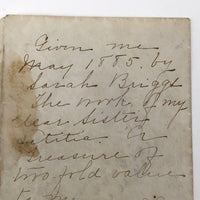 Given me
May 1885 by
Sarah Briggs
The work of my
dear Sister
Letitia. A
treasure of
two fold value
to me